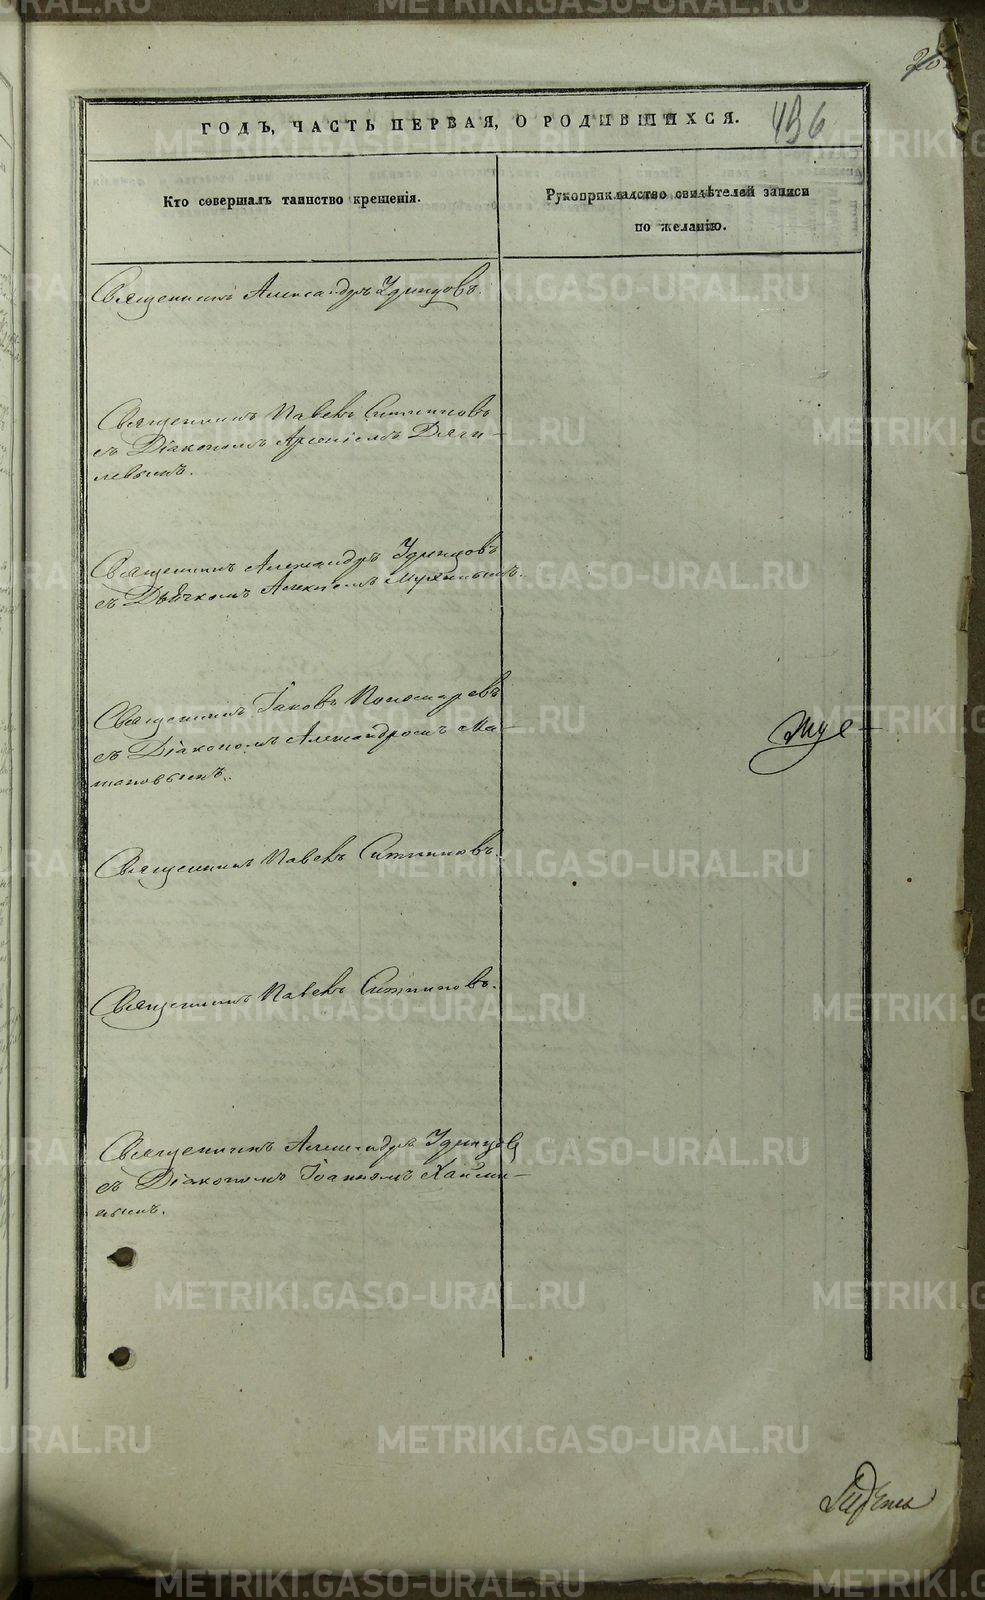 436
ГОДЪ, ЧАСТЬ ПЕРВАЯ, О РОДИВШИХСЯ.
Кто совершалъ таинство крещенія.
Рукоприкладство свидѣтелей записи
по желанію.
Священникъ Александръ Удинцовъ.
Священникъ Павелъ Ситниковъ
съ Діакономъ Арсеніемъ Дяги-
левымъ.
Священникъ Александръ Удинцовъ
съ Дьячкомъ Алексѣемъ
Священникъ Іаковъ Пономаревъ
съ Діакономъ Александромъ Ма-
Священникъ Павелъ Ситниковъ.
Священникъ Павелъ Ситниковъ.
Священникъ Александръ Удинцовъ
съ Діакономъ Іоанномъ
METRIKI.GASO-URAL.RU